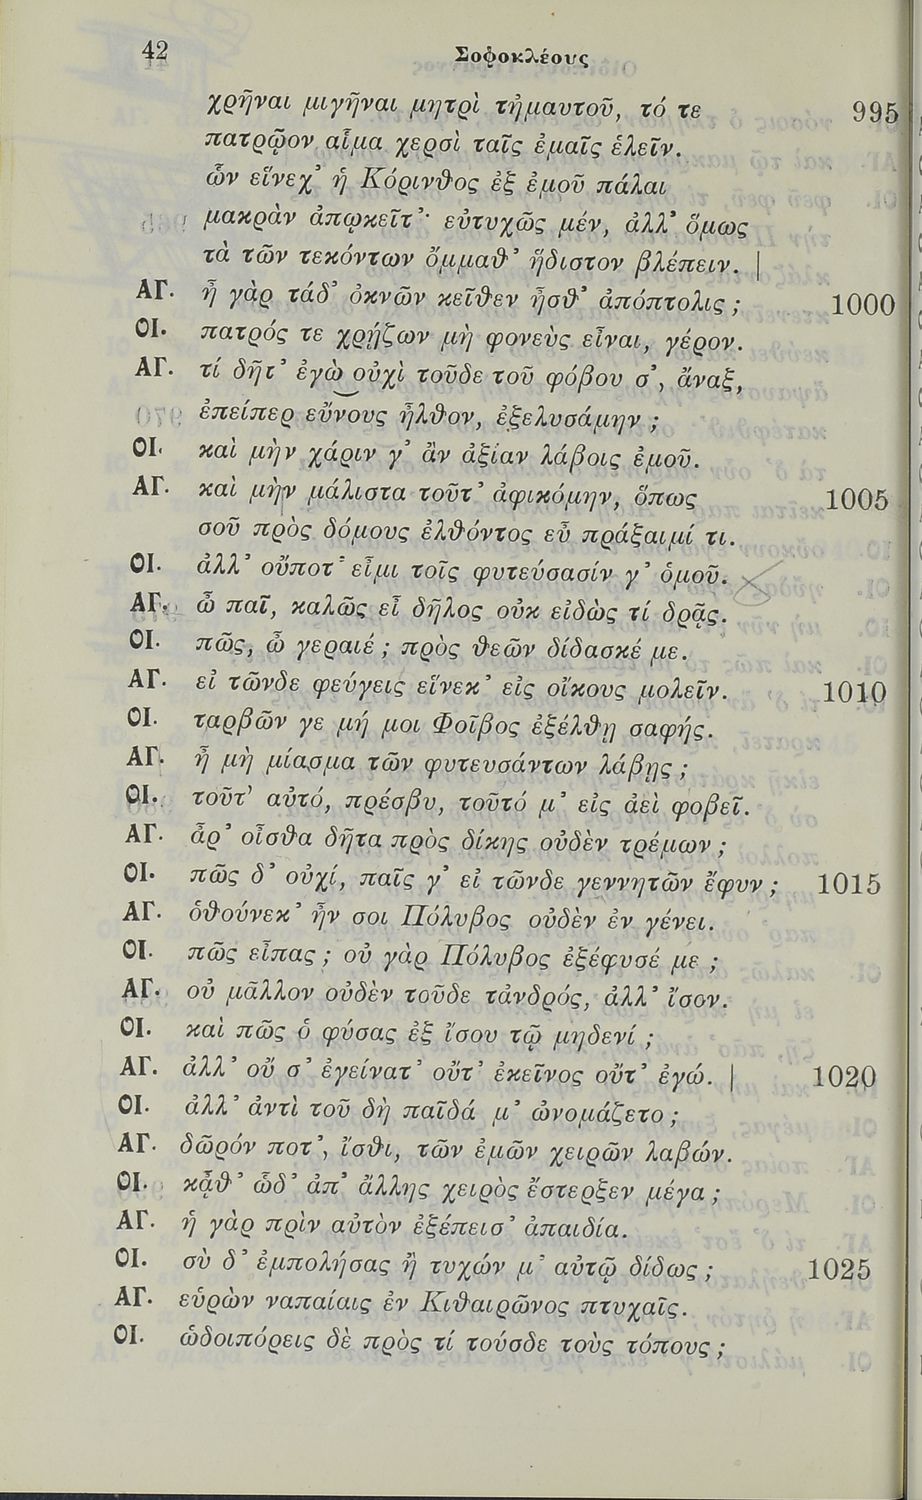 42 Σοφοκλέους
χρῆναι μιγῆναι μητρὶ τἠμαυτοῦ, τό τε 995
πατρῷον αἷμα χερσὶ ταῖς ἐμαῖς ἑλεῖν.
ὧν εἵνεχ' ἡ Κόρινθος ἐξ ἐμοῦ πάλαι
μακρὰν ἀπῳκεῖτ'· εὐτυχῶς μέν, ἀλλ' ὅμως
τὰ τῶν τεκόντων ὄμμαθ' ἥδιστον βλέπειν. |
ΑΓ. ἦ γὰρ τάδ' ὀκνῶν κεῖθεν ἦσθ' ἀπόπτολις; 1000
ΟΙ. πατρός τε χρῄζων μὴ φονεὺς εἶναι, γέρον.
ΑΓ. τί δῆτ' ἐγὼ οὐχὶ τοῦδε τοῦ φόβου σ', ἄναξ,
ἐπείπερ εὔνους ἦλθον, ἐξελυσάμην;
ΟΙ. καὶ μὴν χάριν γ' ἂν ἀξίαν λάβοις ἐμοῦ.
ΑΓ. καὶ μὴν μάλιστα τοῦτ' ἀφικόμην, ὅπως 1005
σοῦ πρὸς δόμους ἐλθόντος εὖ πράξαιμί τι.
ΟΙ. ἀλλ' οὔποτ' εἶμι τοῖς φυτεύσασίν γ' ὁμοῦ.
ΑΓ. ὦ παῖ, καλῶς εἶ δῆλος οὐκ εἰδὼς τί δρᾷς.
ΟΙ. πῶς, ὦ γεραιέ; πρὸς θεῶν δίδασκέ με.
ΑΓ. εἰ τῶνδε φεύγεις εἵνεκ' εἰς οἴκους μολεῖν. 1010
ΟΙ. ταρβῶν γε μή μοι Φοῖβος ἐξέλθῃ σαφής.
ΑΓ. ἦ μὴ μίασμα τῶν φυτευσάντων λάβῃς;
ΟΙ. τοῦτ' αὐτό, πρέσβυ, τοῦτό μ' εἰς ἀεὶ φοβεῖ.
ΑΓ. ἆρ' οἶσθα δῆτα πρὸς δίκης οὐδὲν τρέμων;
ΟΙ. πῶς δ' οὐχί, παῖς γ' εἰ τῶνδε γεννητῶν ἔφυν; 1015
ΑΓ. ὁθούνεκ' ἦν σοι Πόλυβος οὐδὲν ἐν γένει.
ΟΙ. πῶς εἶπας; οὐ γὰρ Πόλυβος ἐξέφυσέ με;
ΑΓ. οὐ μᾶλλον οὐδὲν τοῦδε τἀνδρός, ἀλλ' ἴσον.
ΟΙ. καὶ πῶς ὁ φύσας ἐξ ἴσου τῷ μηδενί;
ΑΓ. ἀλλ' οὔ σ' ἐγείνατ' οὔτ' ἐκεῖνος οὔτ' ἐγώ. | 1020
ΟΙ. ἀλλ' ἀντὶ τοῦ δὴ παῖδά μ' ὠνομάζετο;
ΑΓ. δῶρόν ποτ', ἴσθι, τῶν ἐμῶν χειρῶν λαβών.
ΟΙ. κᾆθ' ὧδ' ἀπ' ἄλλης χειρὸς ἔστερξεν μέγα;
ΑΓ. ἡ γὰρ πρὶν αὐτὸν ἐξέπεισ' ἀπαιδία.
ΟΙ. σὺ δ' ἐμπολήσας ἢ τυχών μ' αὐτῷ δίδως; 1025
ΑΓ. εὑρὼν ναπαίαις ἐν Κιθαιρῶνος πτυχαῖς.
ΟΙ. ὡδοιπόρεις δὲ πρὸς τί τούσδε τοὺς τόπους;